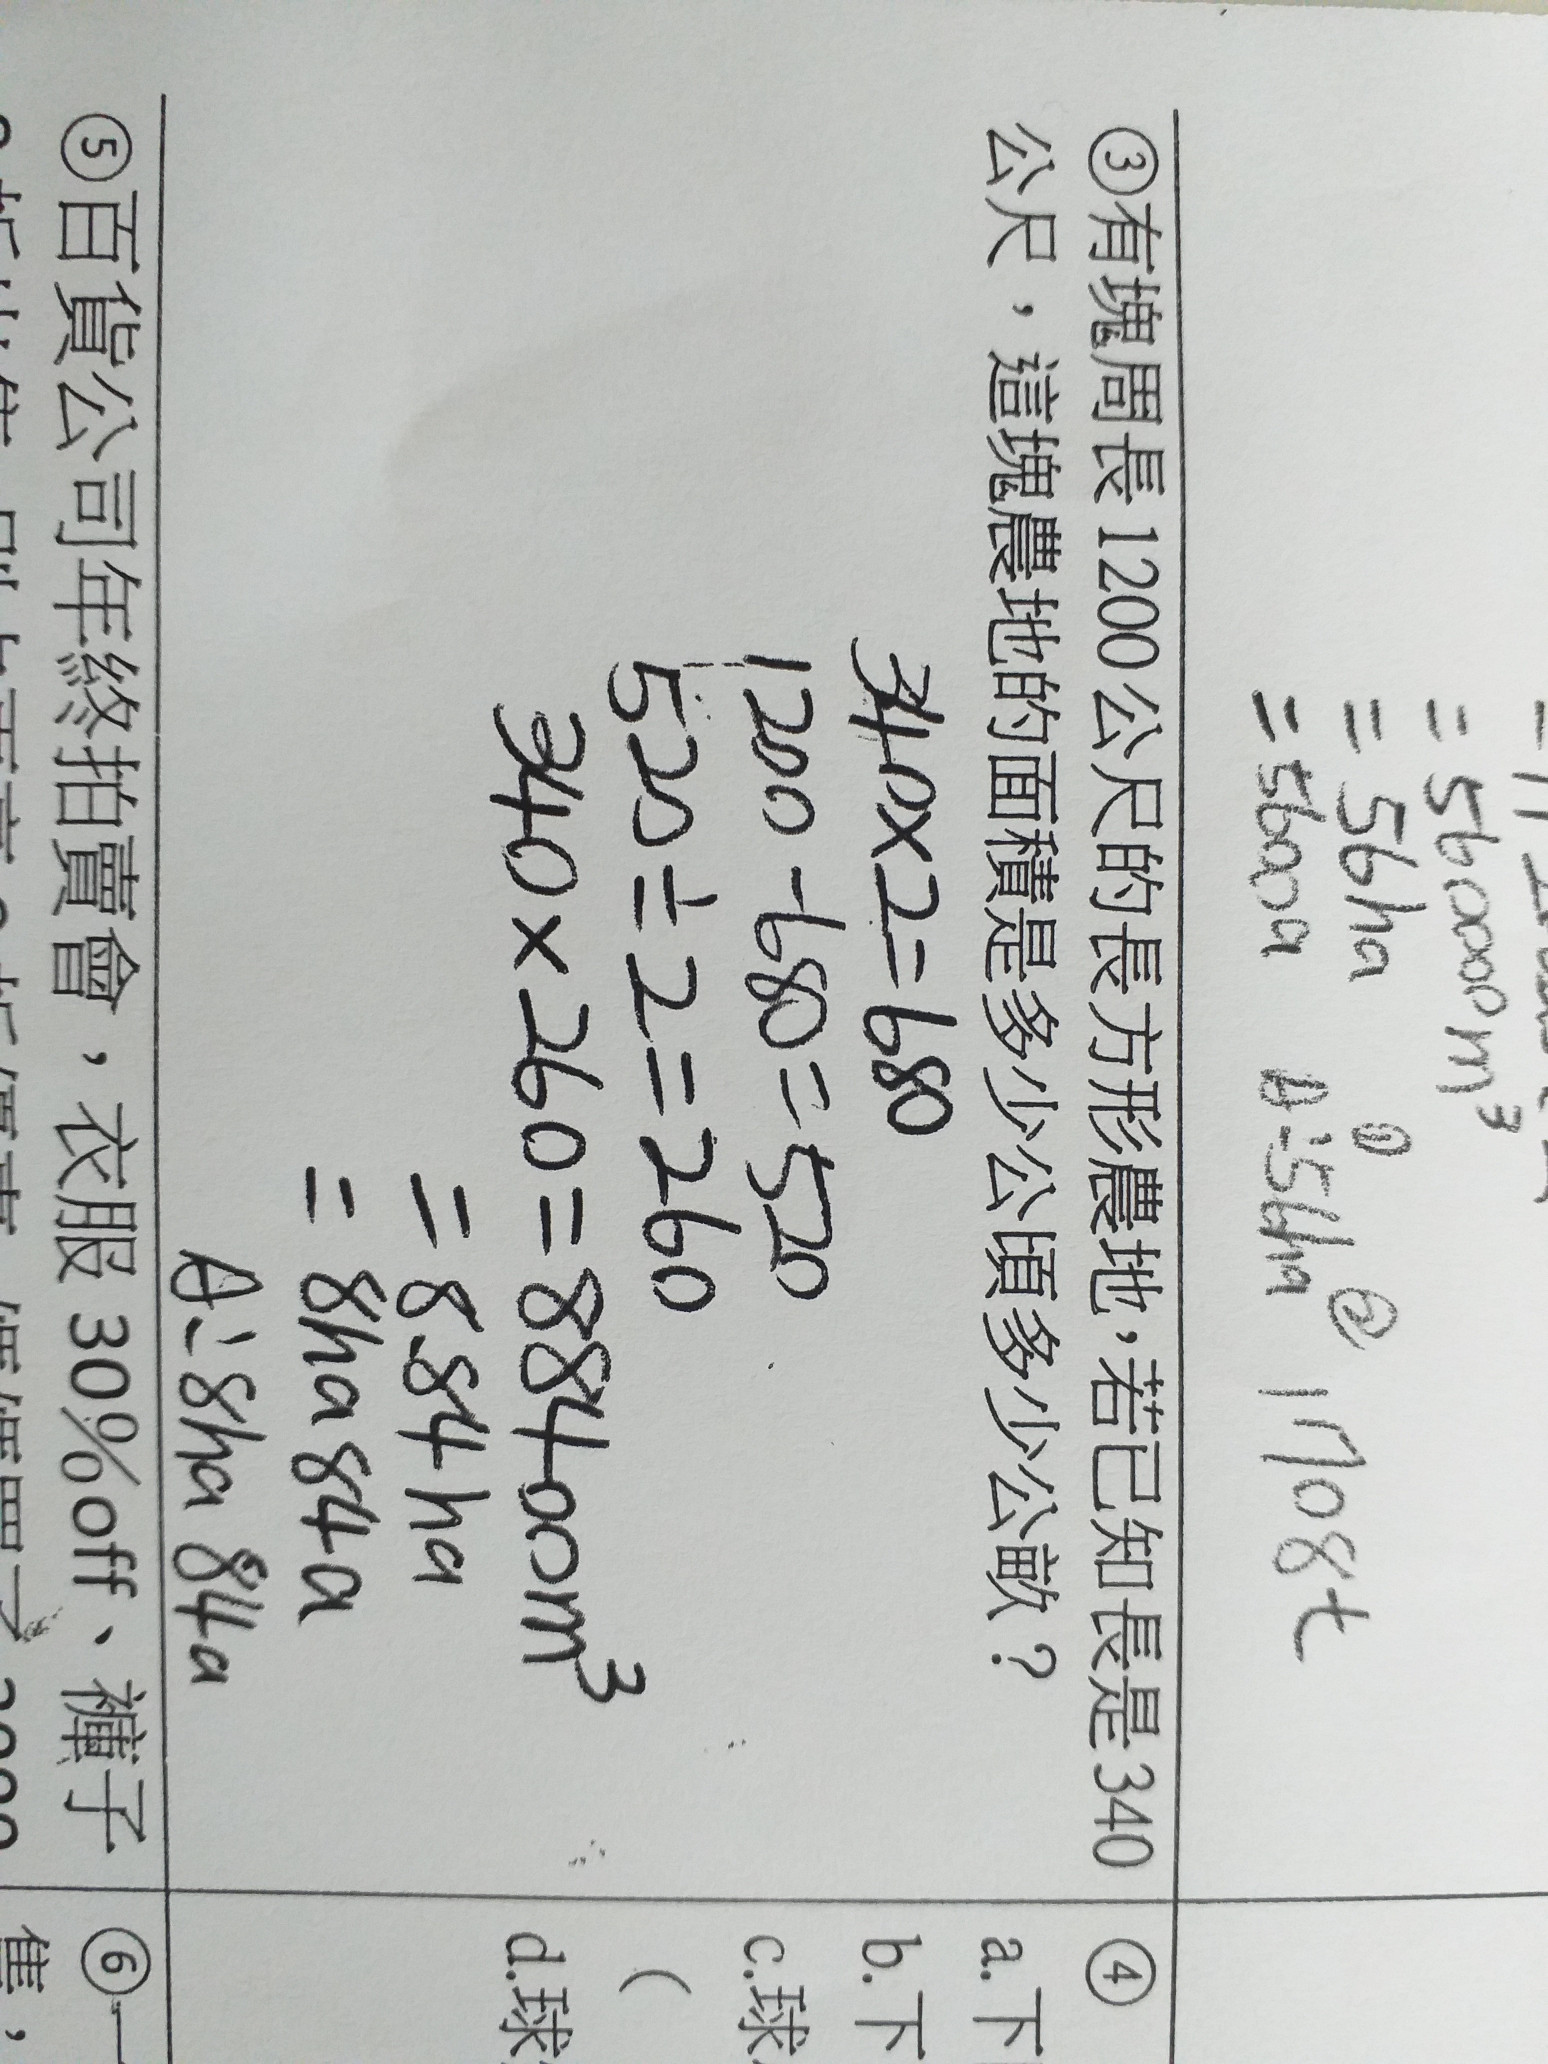 = 560000m³
= 56ha ①
= 5600a A:56ha ② 1708t
③有塊周長1200公尺的長方形農地，若已知長是340
公尺，這塊農地的面積是多少公頃多少公畝？
340×2=680
1200-680=520
520÷2=260
340×260=88400m³
=8.84ha
=8ha84a
A:8ha84a
④
a.下
b.下
c.球
(
d.球
⑤百貨公司年終拍賣會，衣服30%off、褲子
⑥一
售，